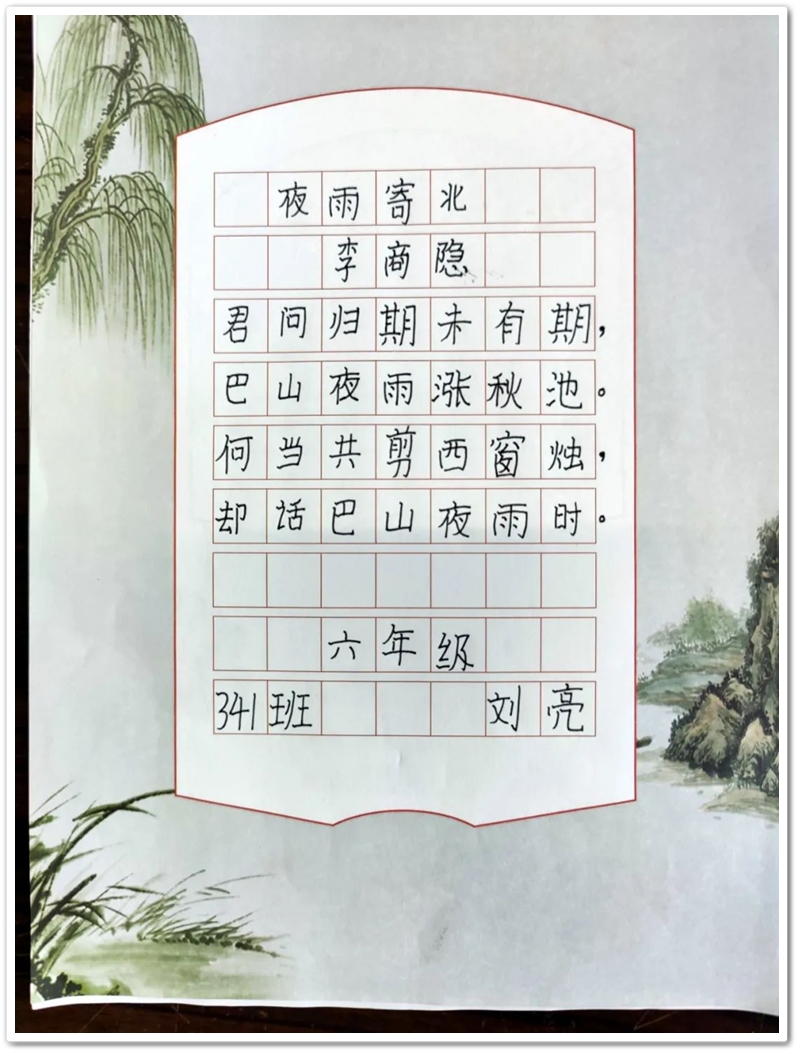 夜雨寄北
李商隐
君问归期未有期，
巴山夜雨涨秋池。
何当共剪西窗烛，
却话巴山夜雨时。
六年级
341班 刘亮